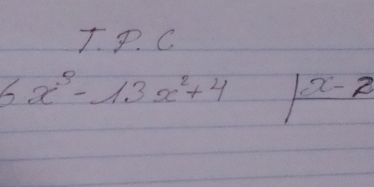 T.P.C
6x³ - 13x² + 4 | x - 2